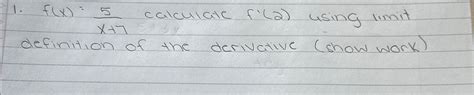 1. f(x) = 5/(x+7) calculate f'(2) using limit
definition of the derivative (show work)